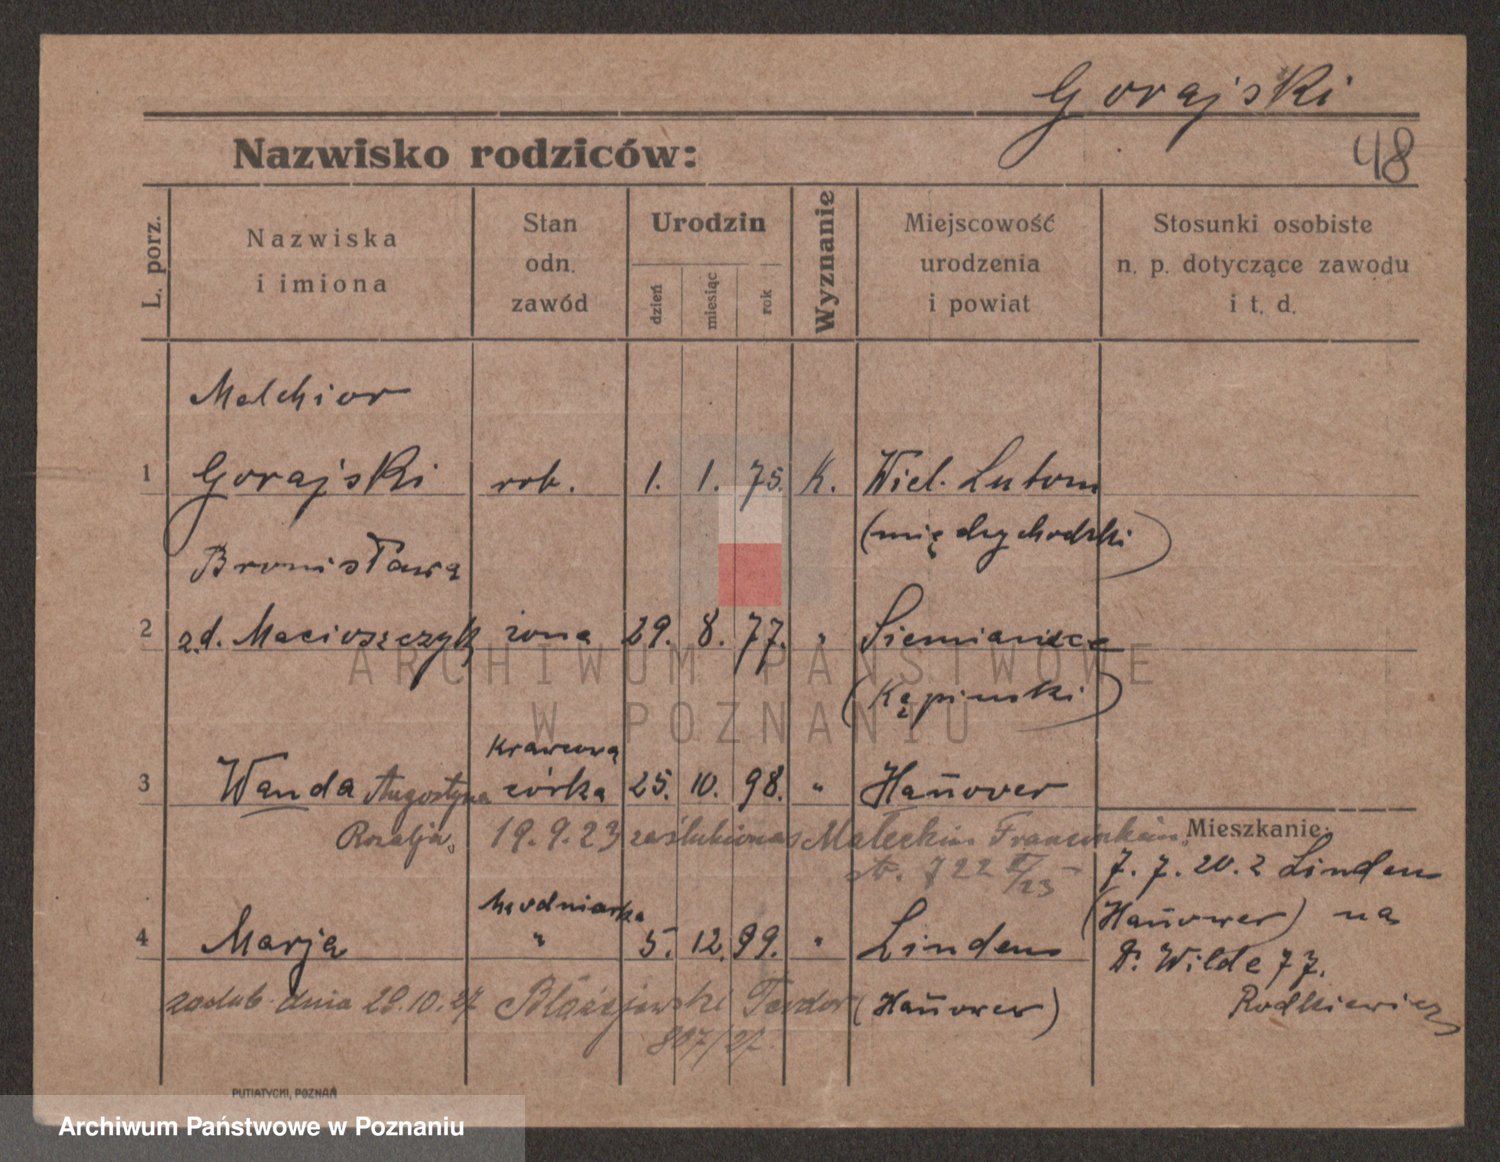 Gorajski
48
Nazwisko rodziców:
L. porz.
Nazwiska
i imiona
Stan
odn.
zawód
Urodzin
dzień
miesiąc
rok
Wyznanie
Miejscowość
urodzenia
i powiat
Stosunki osobiste
n. p. dotyczące zawodu
i t. d.
Melchior
1 Gorajski rob. 1. 1. 75. K. Wiel. Lutom
(międzychodzki)
Bronisława
2 z.d. Macioszczyk żona 29. 8. 77. " Siemianice
(Kępinski)
krawcowa
3 Wanda Augostyna córka 25. 10. 98. " Hañover
Rozalja 19.9.23 zaślubiona Małeckim Franciszkiem
722 II/23
Mieszkanie:
7. 7. 20. z Linden
(Hañower) na
D. Wilde 77.
Rodkiewicz
4 Marja " 5. 12. 99. " Linden
zaślub. dnia 29.10.27 Błażejewski Teodor (Hañower)
807/27
PUTIATYCKI, POZNAŃ
ARCHIWUM PAŃSTWOWE
W POZNANIU
Archiwum Państwowe w Poznaniu